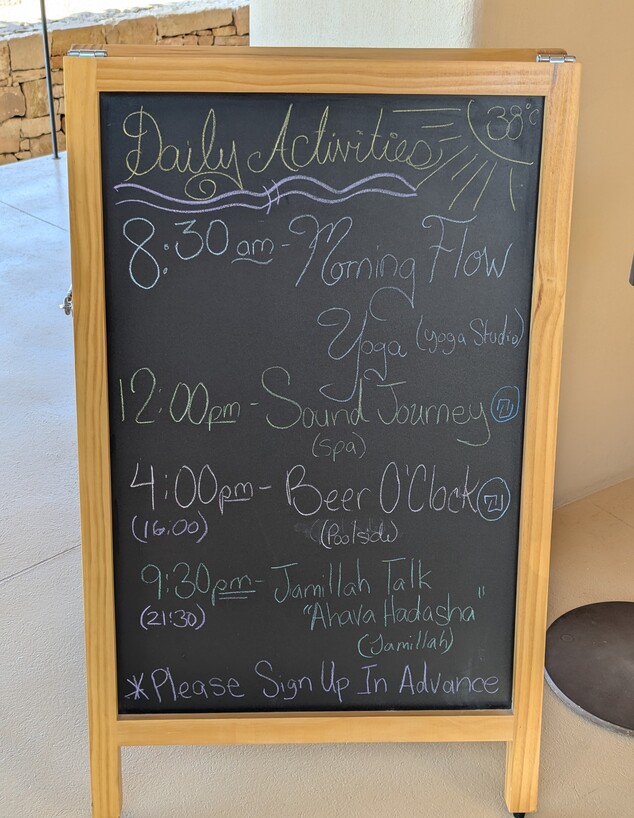 Daily Activities 38°C
8:30am - Morning Flow
Yoga (Yoga Studio)
12:00pm - Sound Journey
(Spa)
4:00pm - Beer O'Clock
(16:00) (Poolside)
9:30pm - Jamillah Talk
(21:30) "Ahava Hadasha"
(Jamillah)
*Please Sign Up In Advance